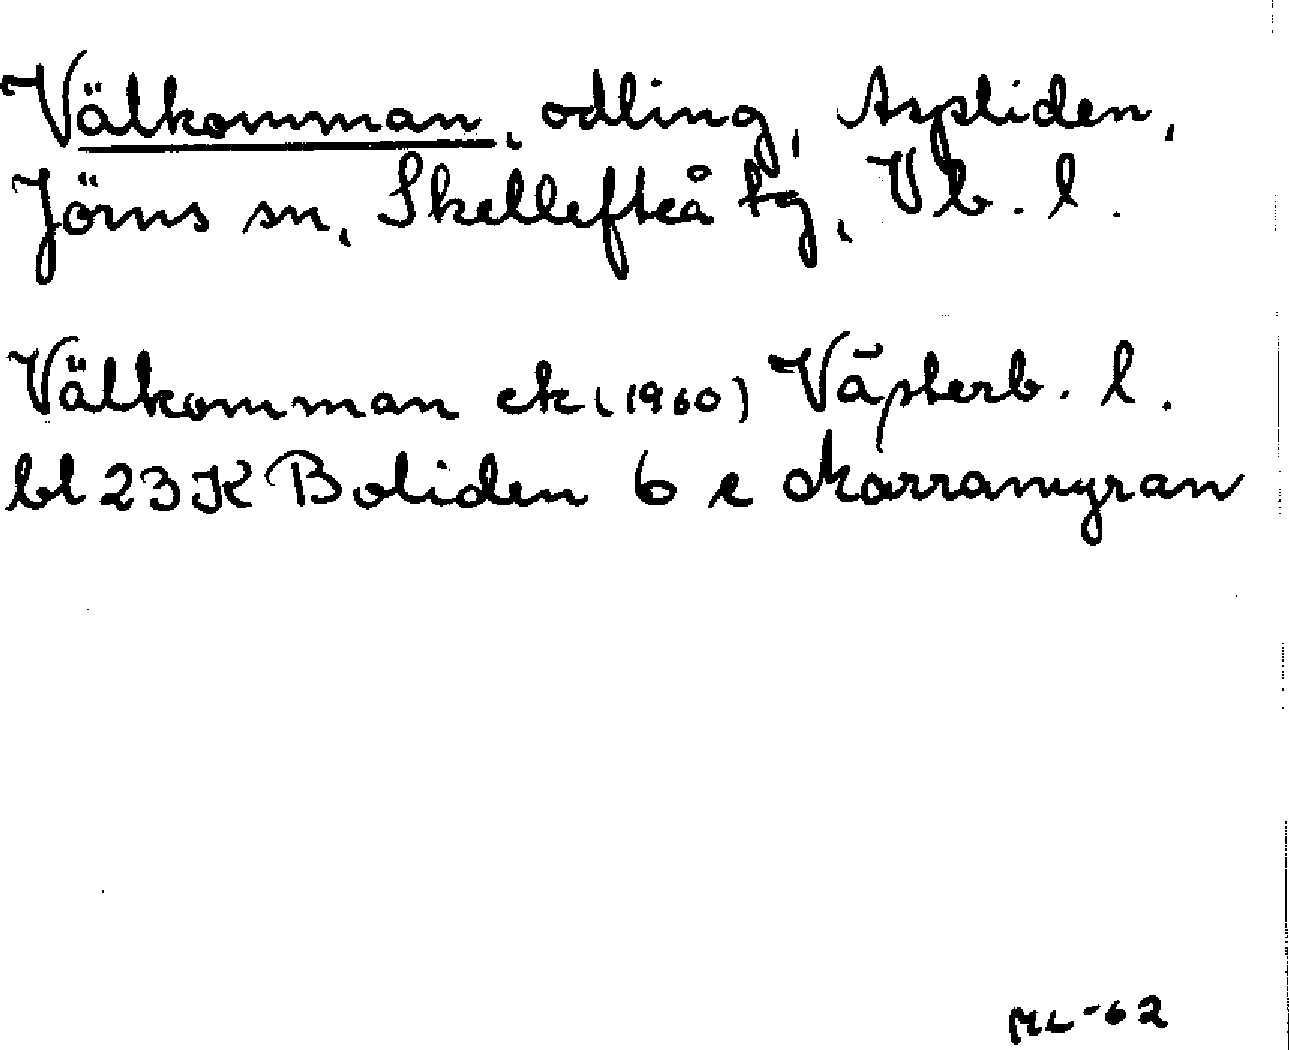 Välkomman, odling, Aspliden,
Jörns sn, Skellefteå tg, Vb. l.
Välkomman ek (1960) Västerb. l.
bl 23 K Boliden 6 e Morramyran
ML-62